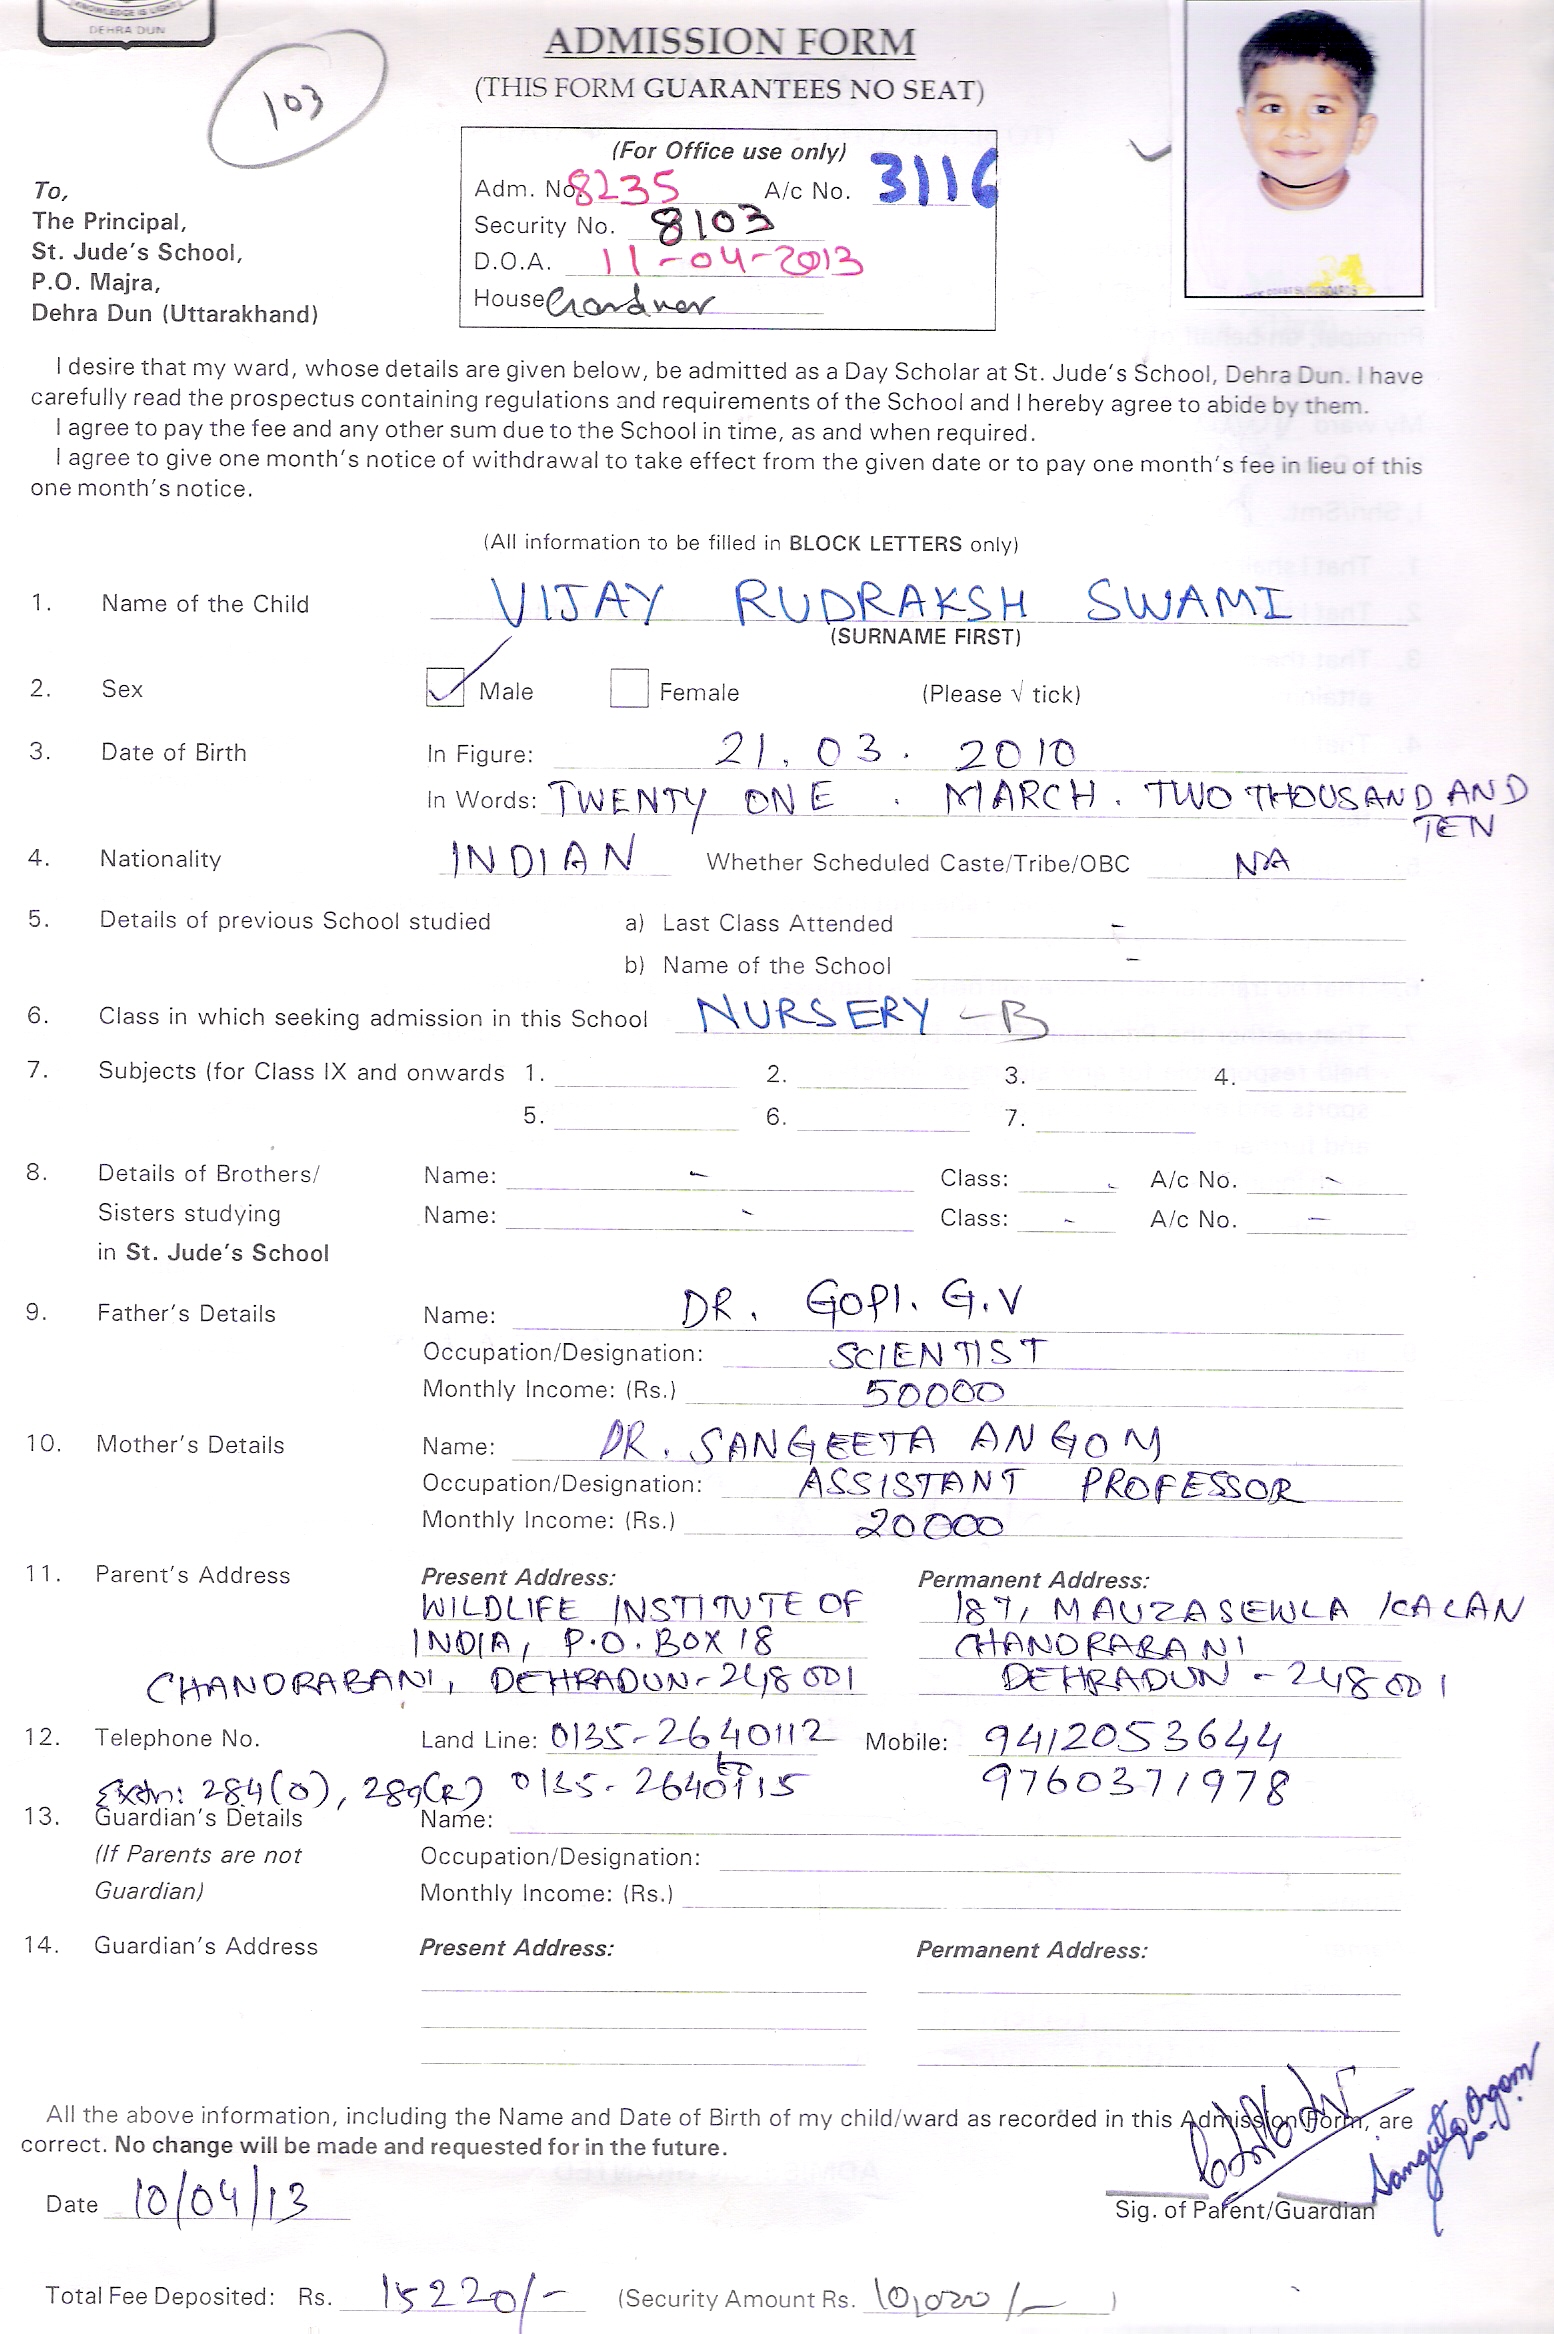 KNOWLEDGE IS LIGHT
DEHRA DUN
ADMISSION FORM
(THIS FORM GUARANTEES NO SEAT)
103
(For Office use only)
Adm. No. 8235 A/c No. 3116
Security No. 8103
D.O.A. 11-04-2013
House Gardner
To,
The Principal,
St. Jude's School,
P.O. Majra,
Dehra Dun (Uttarakhand)
I desire that my ward, whose details are given below, be admitted as a Day Scholar at St. Jude's School, Dehra Dun. I have
carefully read the prospectus containing regulations and requirements of the School and I hereby agree to abide by them.
I agree to pay the fee and any other sum due to the School in time, as and when required.
I agree to give one month's notice of withdrawal to take effect from the given date or to pay one month's fee in lieu of this
one month's notice.
(All information to be filled in BLOCK LETTERS only)
1. Name of the Child VIJAY RUDRAKSH SWAMI
(SURNAME FIRST)
2. Sex Male Female (Please √ tick)
3. Date of Birth In Figure: 21. 03. 2010
In Words: TWENTY ONE . MARCH . TWO THOUSAND AND
TEN
4. Nationality INDIAN Whether Scheduled Caste/Tribe/OBC NA
5. Details of previous School studied a) Last Class Attended -
b) Name of the School -
6. Class in which seeking admission in this School NURSERY - B
7. Subjects (for Class IX and onwards 1. 2. 3. 4.
5. 6. 7.
8. Details of Brothers/ Name: - Class: - A/c No. -
Sisters studying Name: - Class: - A/c No. -
in St. Jude's School
9. Father's Details Name: DR. GOPI. G.V
Occupation/Designation: SCIENTIST
Monthly Income: (Rs.) 50000
10. Mother's Details Name: DR. SANGEETA ANGOM
Occupation/Designation: ASSISTANT PROFESSOR
Monthly Income: (Rs.) 20000
11. Parent's Address Present Address: Permanent Address:
WILDLIFE INSTITUTE OF 187, MAUZASEWLA KALAN
INDIA, P.O. BOX 18 CHANDRABANI
CHANDRABANI, DEHRADUN-248001 DEHRADUN - 248001
12. Telephone No. Land Line: 0135-2640112 Mobile: 9412053644
to
Extn: 284(O), 289(R) 0135-2640115 9760371978
13. Guardian's Details Name:
(If Parents are not Occupation/Designation:
Guardian) Monthly Income: (Rs.)
14. Guardian's Address Present Address: Permanent Address:
All the above information, including the Name and Date of Birth of my child/ward as recorded in this Admission Form, are
correct. No change will be made and requested for in the future.
Sangeeta Angom
Date 10/04/13
Sig. of Parent/Guardian
Total Fee Deposited: Rs. 15220/- (Security Amount Rs. 10,000/- )